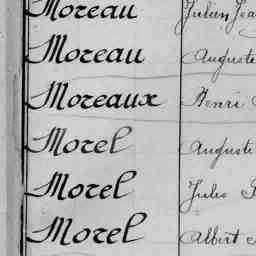 Moreau Julien Jea
Moreau Auguste
Moreaux Henri
Morel Auguste
Morel Jules
Morel Albert